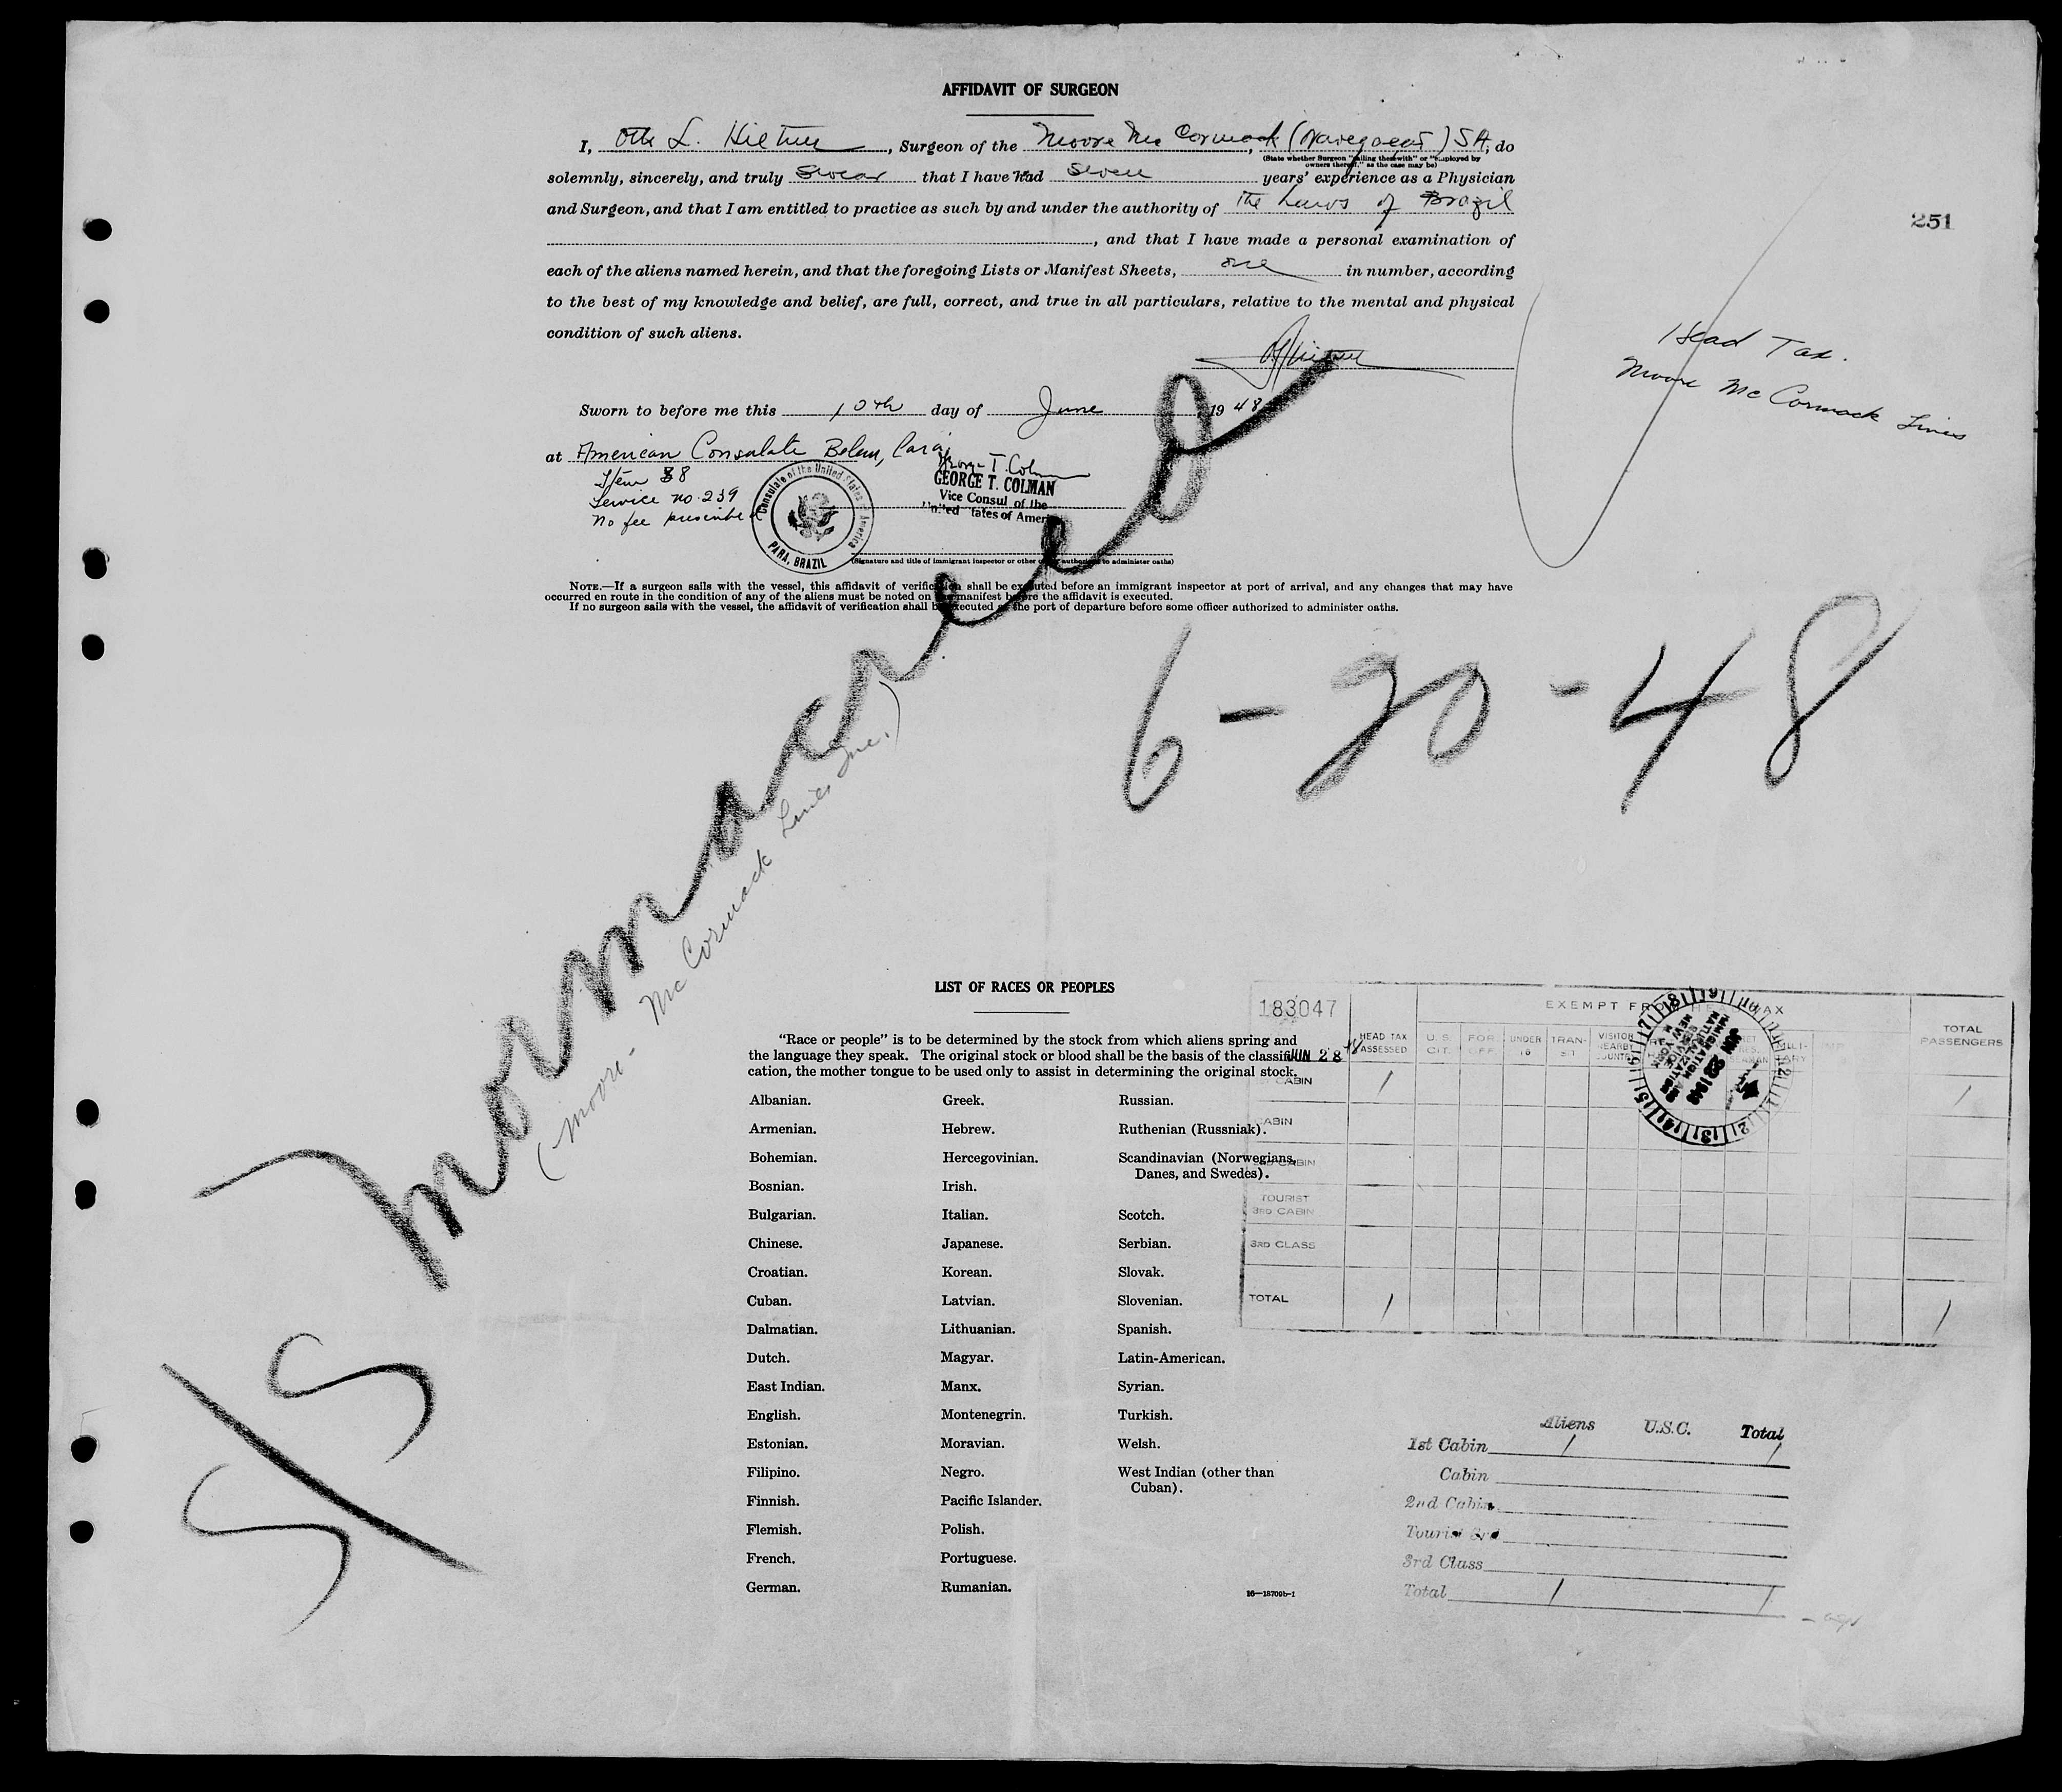 AFFIDAVIT OF SURGEON
I, Otto L. Hiltner, Surgeon of the Moore Mc Cormack (Navegacao) SA, do
(State whether Surgeon "sailing therewith" or "employed by
owners thereof," as the case may be)
solemnly, sincerely, and truly swear that I have had seven years' experience as a Physician
and Surgeon, and that I am entitled to practice as such by and under the authority of The Laws of Brazil
, and that I have made a personal examination of
each of the aliens named herein, and that the foregoing Lists or Manifest Sheets, one in number, according
to the best of my knowledge and belief, are full, correct, and true in all particulars, relative to the mental and physical
condition of such aliens.
251
Head Tax.
Moore Mc Cormack Lines
Sworn to before me this 10th day of June, 1948
at American Consulate Belem, Para,
Item 38
Service no. 239
No fee prescribed
Consulate of the United States of America
PARA, BRAZIL
George T. Colman
GEORGE T. COLMAN
Vice Consul of the
United States of America
(Signature and title of immigrant inspector or other officer authorized to administer oaths)
NOTE.—If a surgeon sails with the vessel, this affidavit of verification shall be executed before an immigrant inspector at port of arrival, and any changes that may have
occurred en route in the condition of any of the aliens must be noted on the manifest before the affidavit is executed.
If no surgeon sails with the vessel, the affidavit of verification shall be executed at the port of departure before some officer authorized to administer oaths.
S/S Mormacreed
(Moore-Mc Cormack Lines Inc.)
6-20-48
LIST OF RACES OR PEOPLES
"Race or people" is to be determined by the stock from which aliens spring and
the language they speak. The original stock or blood shall be the basis of the classifi-
cation, the mother tongue to be used only to assist in determining the original stock.
Albanian.
Armenian.
Bohemian.
Bosnian.
Bulgarian.
Chinese.
Croatian.
Cuban.
Dalmatian.
Dutch.
East Indian.
English.
Estonian.
Filipino.
Finnish.
Flemish.
French.
German.
Greek.
Hebrew.
Hercegovinian.
Irish.
Italian.
Japanese.
Korean.
Latvian.
Lithuanian.
Magyar.
Manx.
Montenegrin.
Moravian.
Negro.
Pacific Islander.
Polish.
Portuguese.
Rumanian.
Russian.
Ruthenian (Russniak).
Scandinavian (Norwegians,
Danes, and Swedes).
Scotch.
Serbian.
Slovak.
Slovenian.
Spanish.
Latin-American.
Syrian.
Turkish.
Welsh.
West Indian (other than
Cuban).
16—18709b-1
183047
JUN 28 48
EXEMPT FROM HEAD TAX
HEAD TAX ASSESSED
U.S. CIT.
FOR OFF.
UNDER 16
TRAN- SIT
VISITOR NEARBY COUNTRY
TOTAL PASSENGERS
1ST CABIN 1 1
CABIN
2ND CABIN
TOURIST 3RD CABIN
3RD CLASS
TOTAL 1 1
Aliens U.S.C. Total
1st Cabin 1 1
Cabin
2nd Cabin
Tourist 3rd
3rd Class
Total 1 1